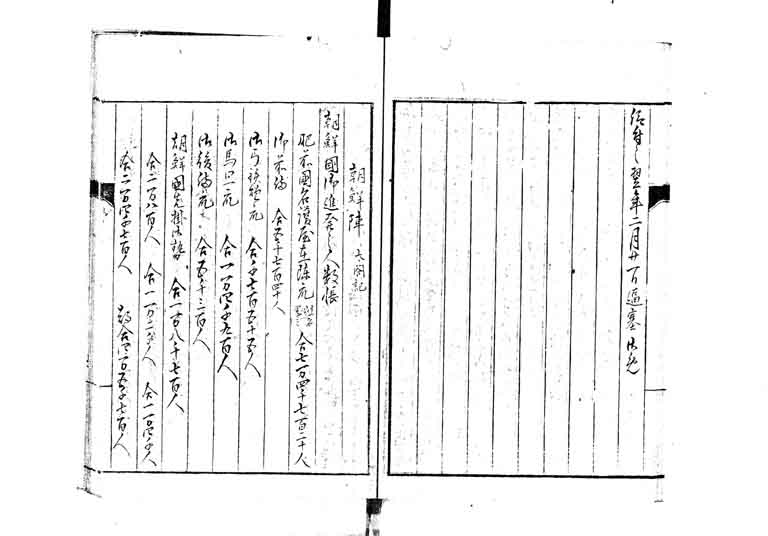 翌年二月廿一日逼塞御免
朝鮮陣 太閤記
朝鮮國御進発之人数帳
肥前國名護屋在陣之 合七万四千七百二十人
御前備 合五千七百四十人
御弓鉄炮之 合千七百五十五人
御馬廻之 合一万四千九百人
御後備之 合五千三百人
朝鮮國先掛御勢 合一万八千七百人
合二万八百人 合一万二千人 合一万四千人
合二万四千七百人 都合四万五千七百人